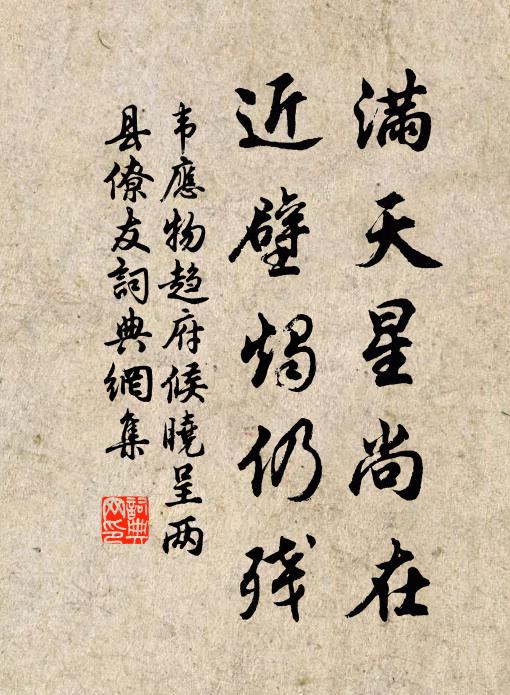 满天星尚在
近壁烛仍残
韦應物趋府候曉呈两
县僚友詞典網集
詞典
网印